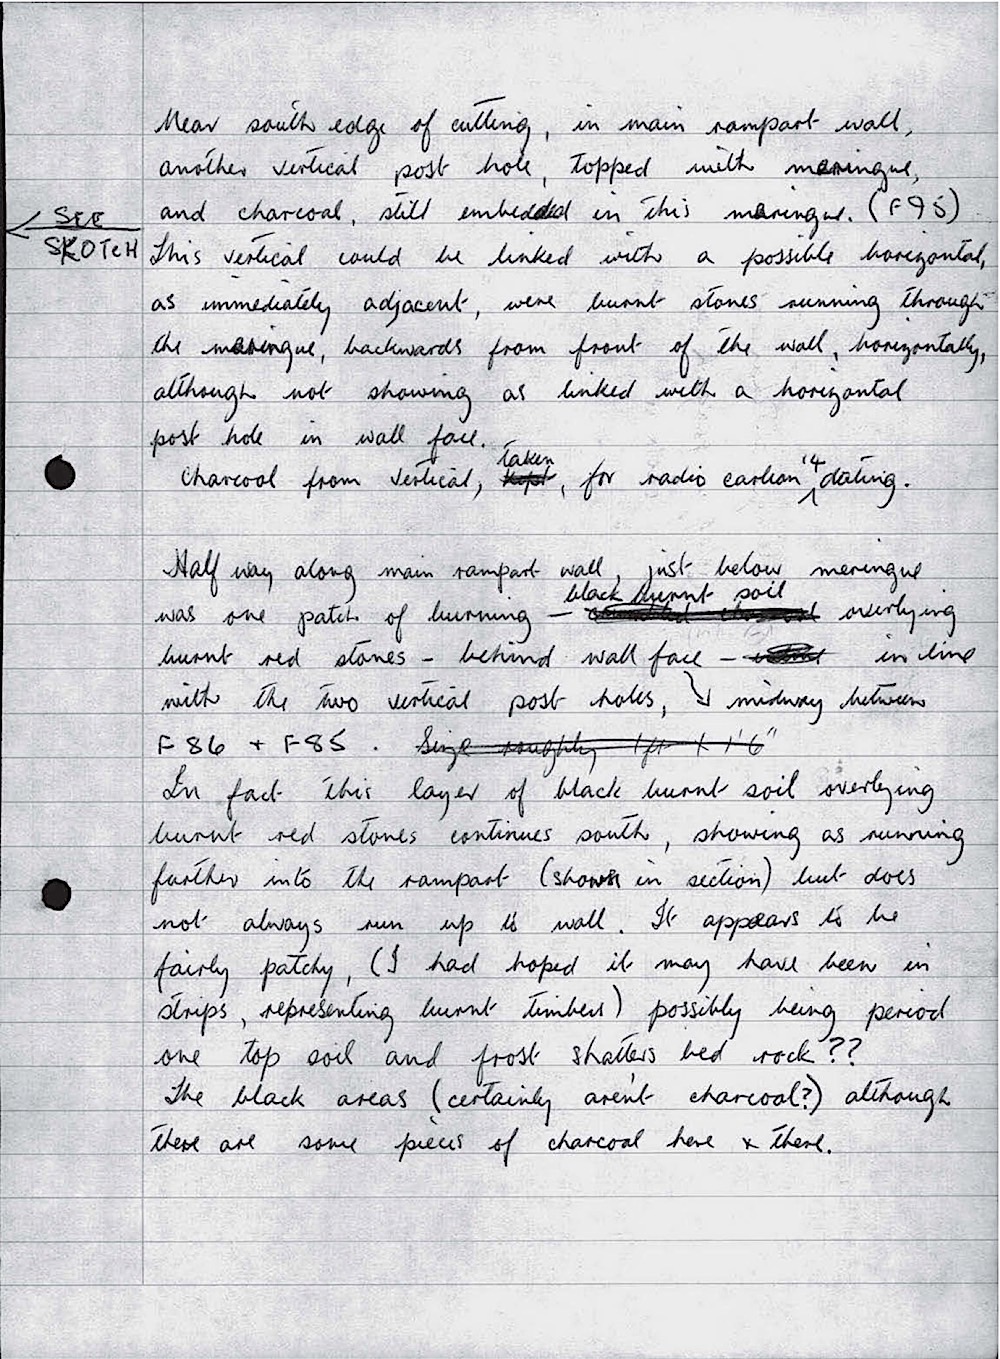 Near south edge of cutting, in main rampart wall,
another vertical post hole, topped with meringue,
and charcoal, still embedded in this meringue. (F95)
SEE
SKOTCH
This vertical could be linked with a possible horizontal,
as immediately adjacent, were burnt stones running through
the meringue, backwards from front of the wall, horizontally,
although not showing as linked with a horizontal
post hole in wall face.
Charcoal from vertical, kept taken, for radio carbon 14 dating.
Half way along main rampart wall, just below meringue
was one patch of burning – black burnt soil overlying
burnt red stones – behind wall face – in line
with the two vertical post holes, ↘ midway between
F86 + F85. Size roughly 1ft x 1'6"
In fact this layer of black burnt soil overlying
burnt red stones continues south, showing as running
further into the rampart (shown in section) but does
not always run up to wall. It appears to be
fairly patchy, (I had hoped it may have been in
strips, representing burnt timbers) possibly being period
one top soil and frost shatters bed rock??
The black areas (certainly aren't charcoal?) although
there are some pieces of charcoal here & there.